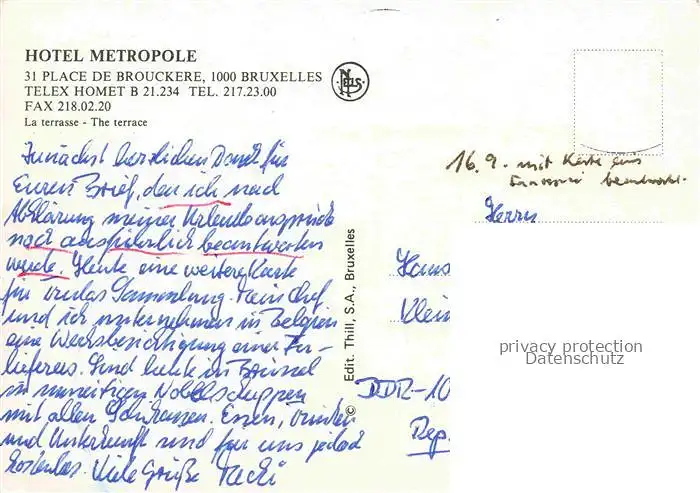 HOTEL METROPOLE
31 PLACE DE BROUCKERE, 1000 BRUXELLES
TELEX HOMET B 21.234 TEL. 217.23.00
FAX 218.02.20
La terrasse - The terrace
NELS
Zunächst herzlichen Dank für
Euren Brief, den ich nach
Abklärung meiner Urlaubsansprüche
noch ausführlich beantworten
werde. Heute eine weitere Karte
für Sammlung. Mein Chef
und ich unternehmen in Belgien
eine Werksbesichtigung eines
lieferers. Sind heute in Brüssel
in Nobelschuppen
mit allen Schikanen. Essen, Trinken
und Unterkunft sind für uns jedoch
kostenlos. Viele Grüße
© Edit. Thill, S.A., Bruxelles
16.9. mit Karte aus
beantwortet.
Herrn
Hans
Klein
DDR-10
Rep.
privacy protection
Datenschutz